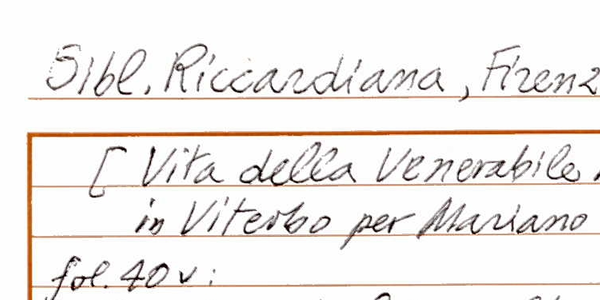 Bibl. Riccardiana, Firenz
[ Vita della Venerabile
in Viterbo per Mariano
fol. 40v: